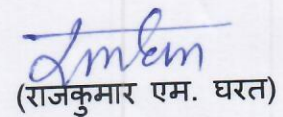 (राजकुमार एम. घरत)